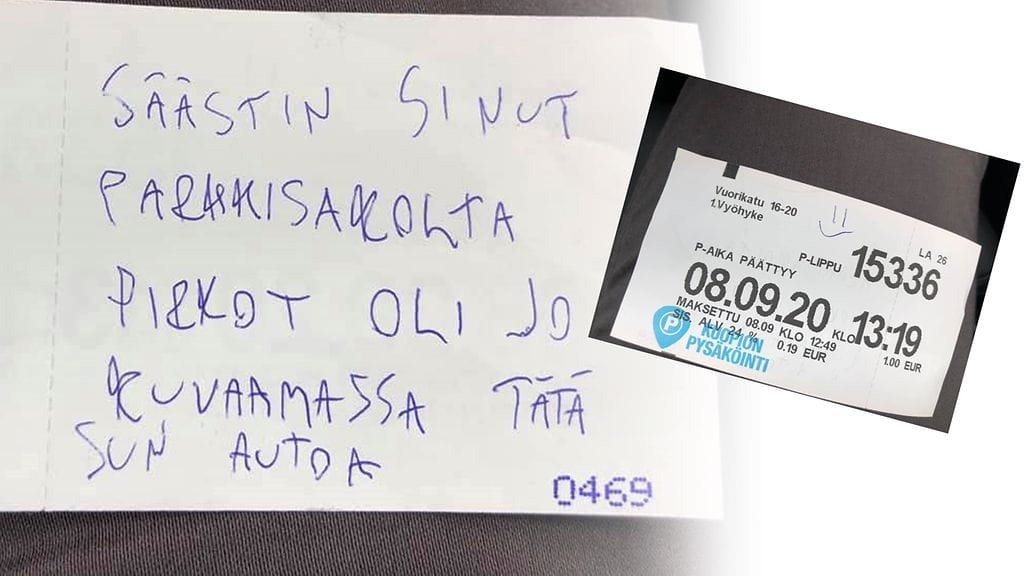 SÄÄSTIN SINUT
PARKKISAKOLTA
PIRKOT OLI JO
KUVAAMASSA TÄTÄ
SUN AUTOA
0469
Vuorikatu 16-20
1.Vyöhyke
LA 26
P-LIPPU 15336
P-AIKA PÄÄTTYY
08.09.20 KLO 13:19
MAKSETTU 08.09 KLO 12:49
1.00 EUR
SIS. ALV 24 % 0.19 EUR
P
KUOPION
PYSÄKÖINTI